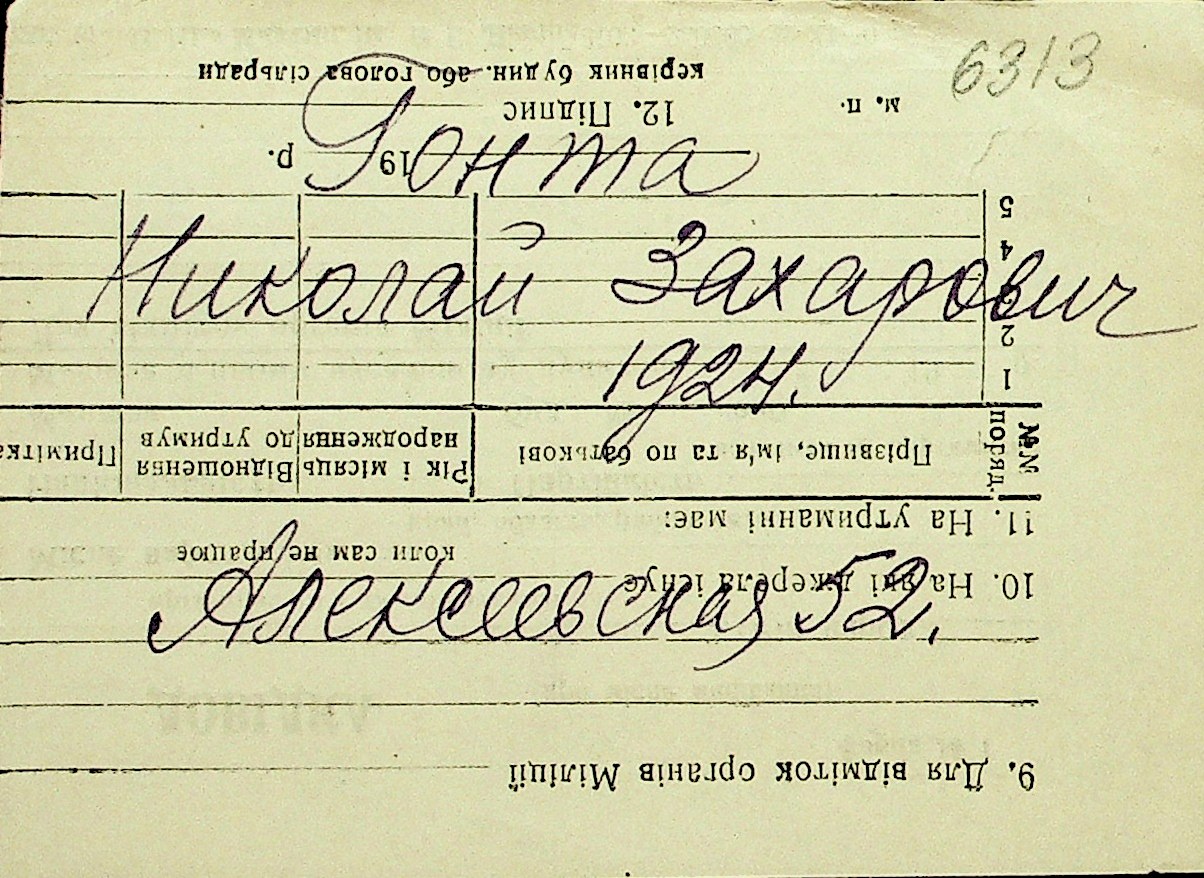 6313
Гонта
Николай Захарович
1924.
Алексеевская 52.
9. Для відміток органів Міліції
10. На які джерела існує
коли сам не працює
11. На утриманні має:
№№ поряд.
Прізвище, ім'я та по батькові
Рік і місяць народження
Відношення до утримув
Примітка
1
2
3
4
5
19 р.
12. Підпис
м. п.
керівник будин. або голова сільради